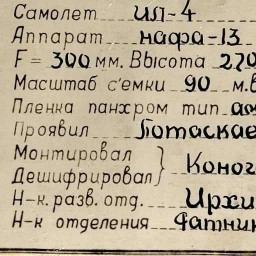 Самолет ил-4
Аппарат нафа-13
F = 300 мм. Высота 220
Масштаб с'емки 90 м.в
Пленка панхром тип
Проявил Потаскае
Монтировал
Дешифрировал } Коног
Н-к. разв. отд. Ирхи
Н-к отделения Фатник